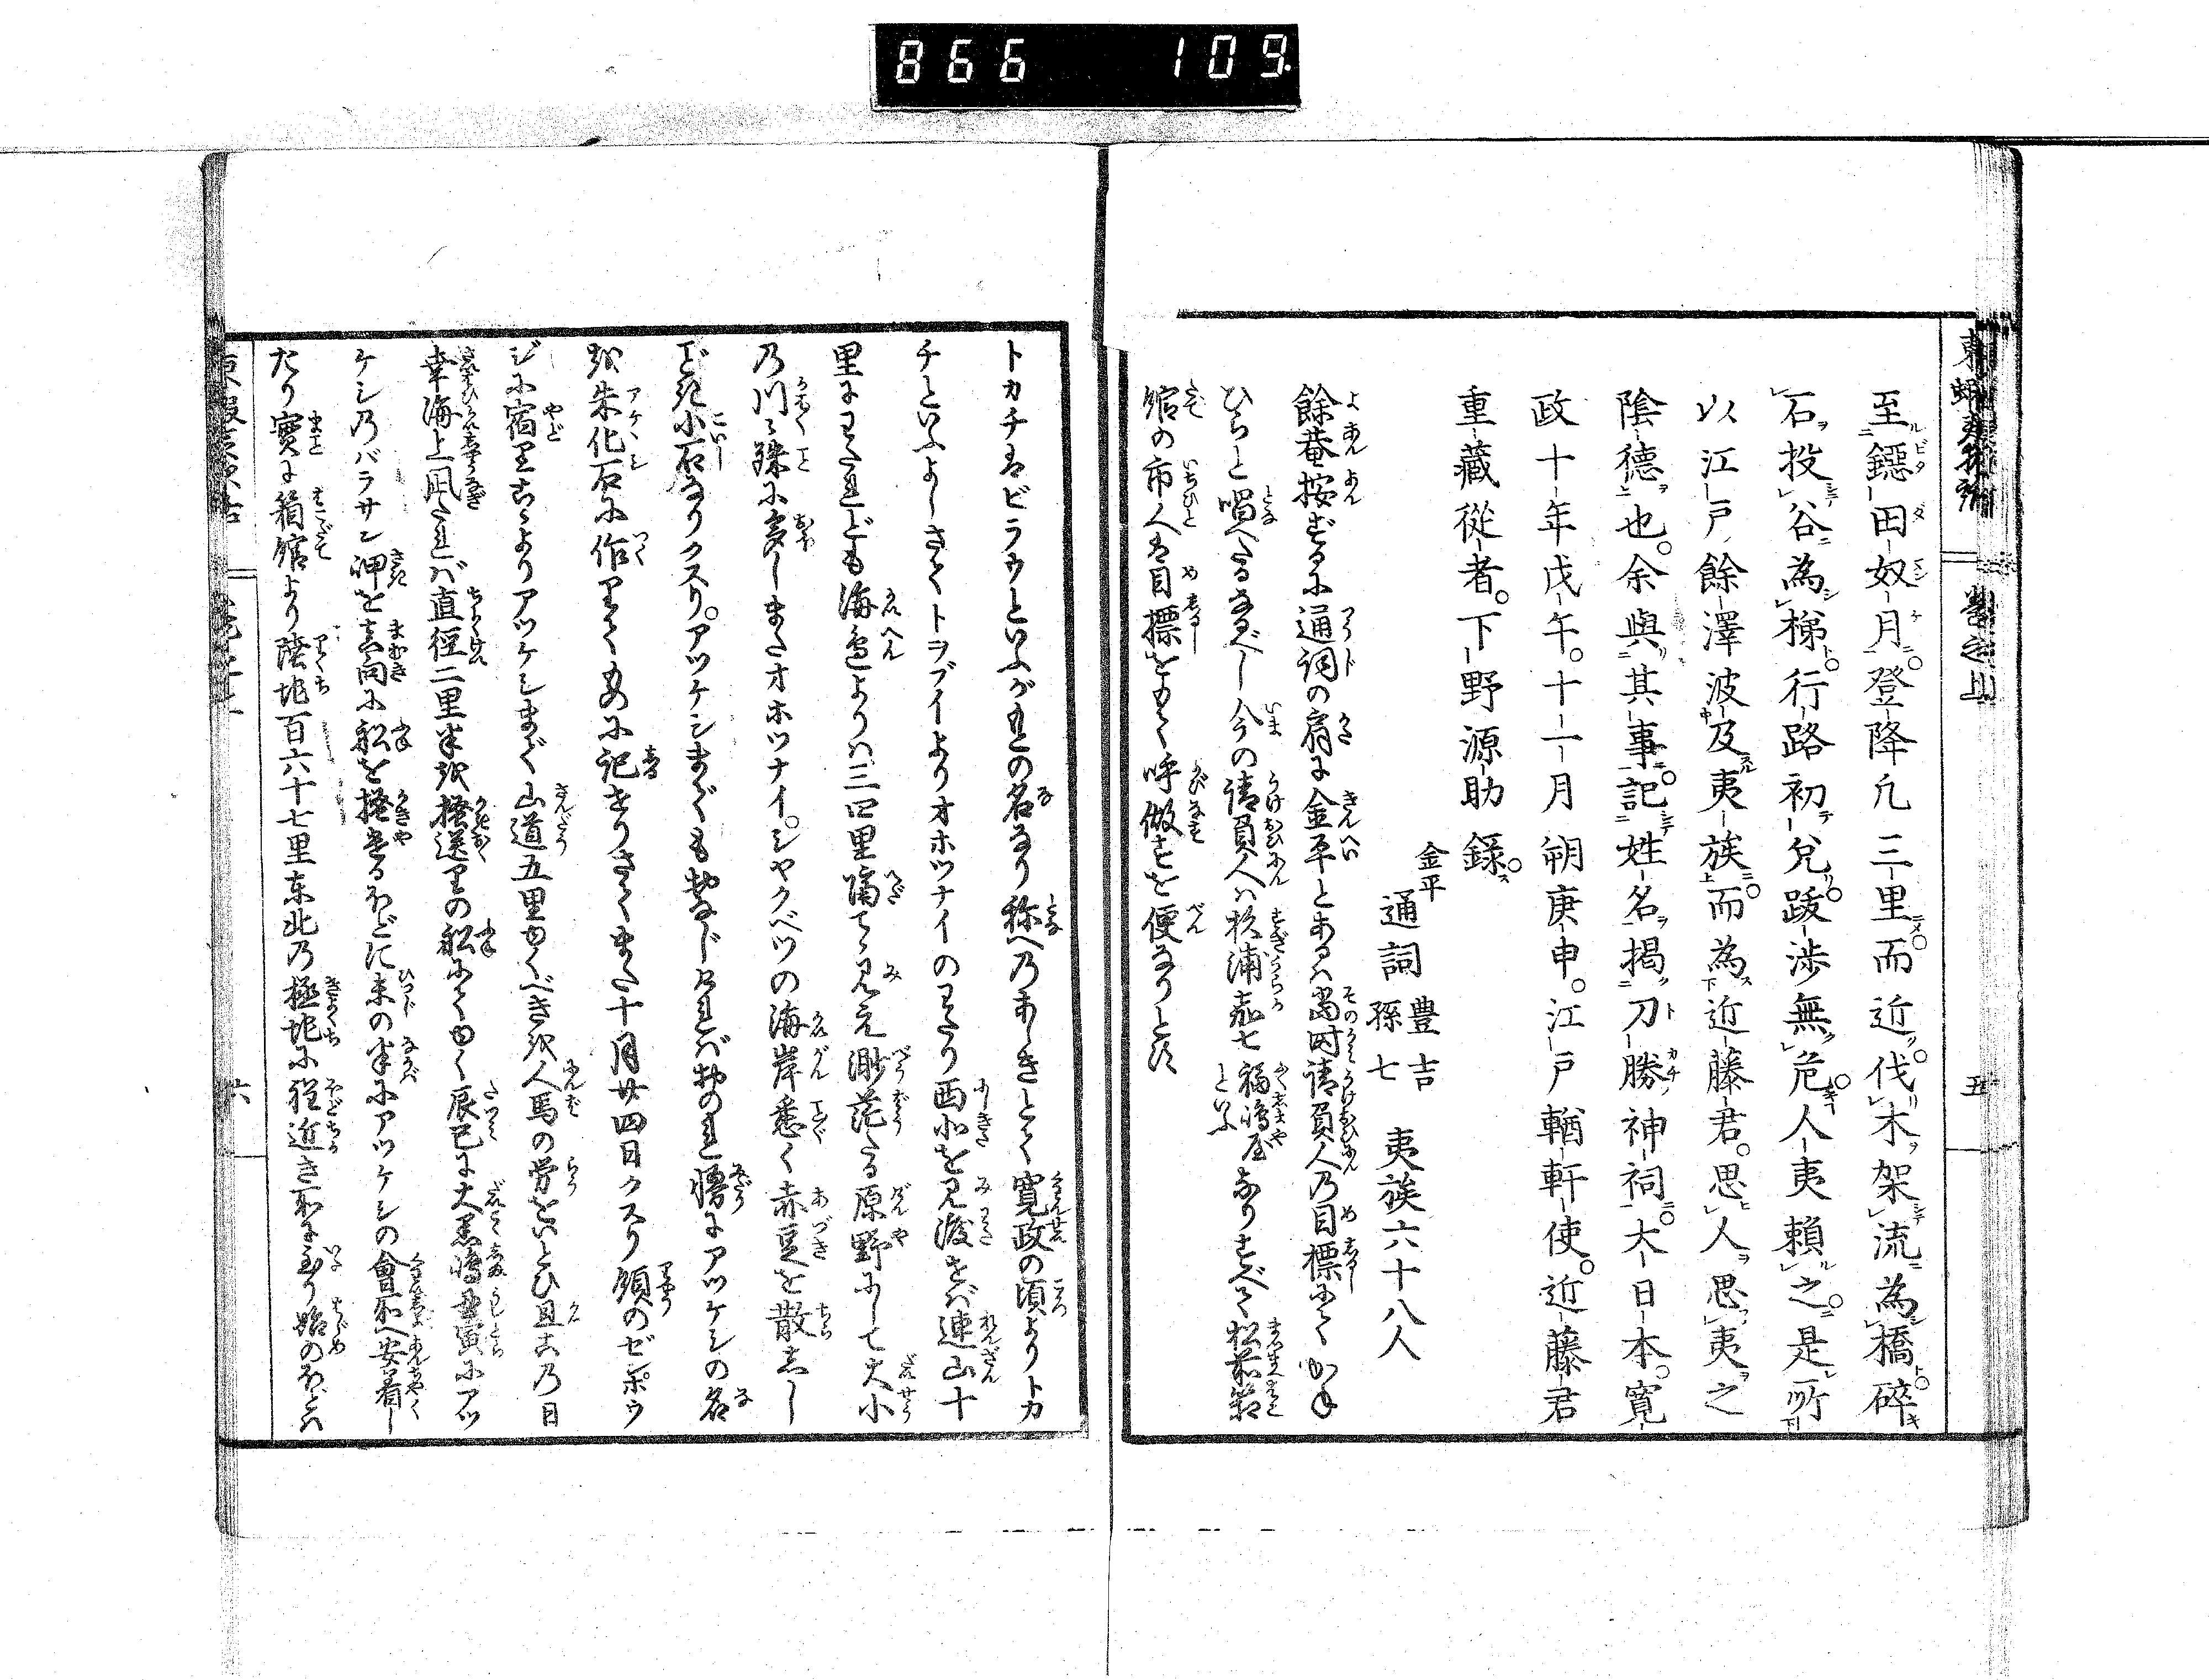 866 109.
東蝦夷夜話 巻之上 五
至鐚田奴月登降凡三里而近伐木架流為橋碎
石投谷為梯行路初兌跋渉無危人夷頼之是所
以江戸餘澤波及夷族而為近藤君思人思夷之
陰徳也余與其事記姓名掲刀勝神祠大日本寛
政十年戊午十一月朔庚申江戸輶軒使近藤君
重藏從者下野源助録
金平
通詞 豊吉 孫七 夷族六十八人
餘菴按ずるに通詞の肩に金平とあるハ當時請負人乃目標にてかね
ひらと唱へたるなるべし今の請負人ハ杉浦嘉七福嶋屋といふなりすべて松前箱
館の市人は目標をもて呼做すを便なりとす
トカチはビラウといふが其の名なり称へ乃あしきとて寛政の頃よりトカ
チといふよしさてトヲブイよりオホツナイのわたり西北を見渡せば連山十
里にわたれども海邉よりハ三四里隔てゝ見え渺茫たる原野にして大小
乃川々殊に多しまたオホツナイ。シヤクベツの海岸悉く赤豆を散らし
どき小石なりクスリ。アツケシまでも
朱化石に作りてものに記せりさてまた十月廿四日クスリ領のゼンポウ
ジに宿りこゝよりアツケシまで山道五里ゆくべきを人馬の労をいとひ且この日
幸海上凪たれば直徑二里半を掻送りの舩にてゆく辰巳に大黒嶋丑寅にアツ
ケシ乃バラサン岬を真向に舩を掻きやるほどに未の半にアツケシの會所へ安着し
たり實に箱館より陸地百六十七里東北乃極地に程近き所に至り始のほどハ
六